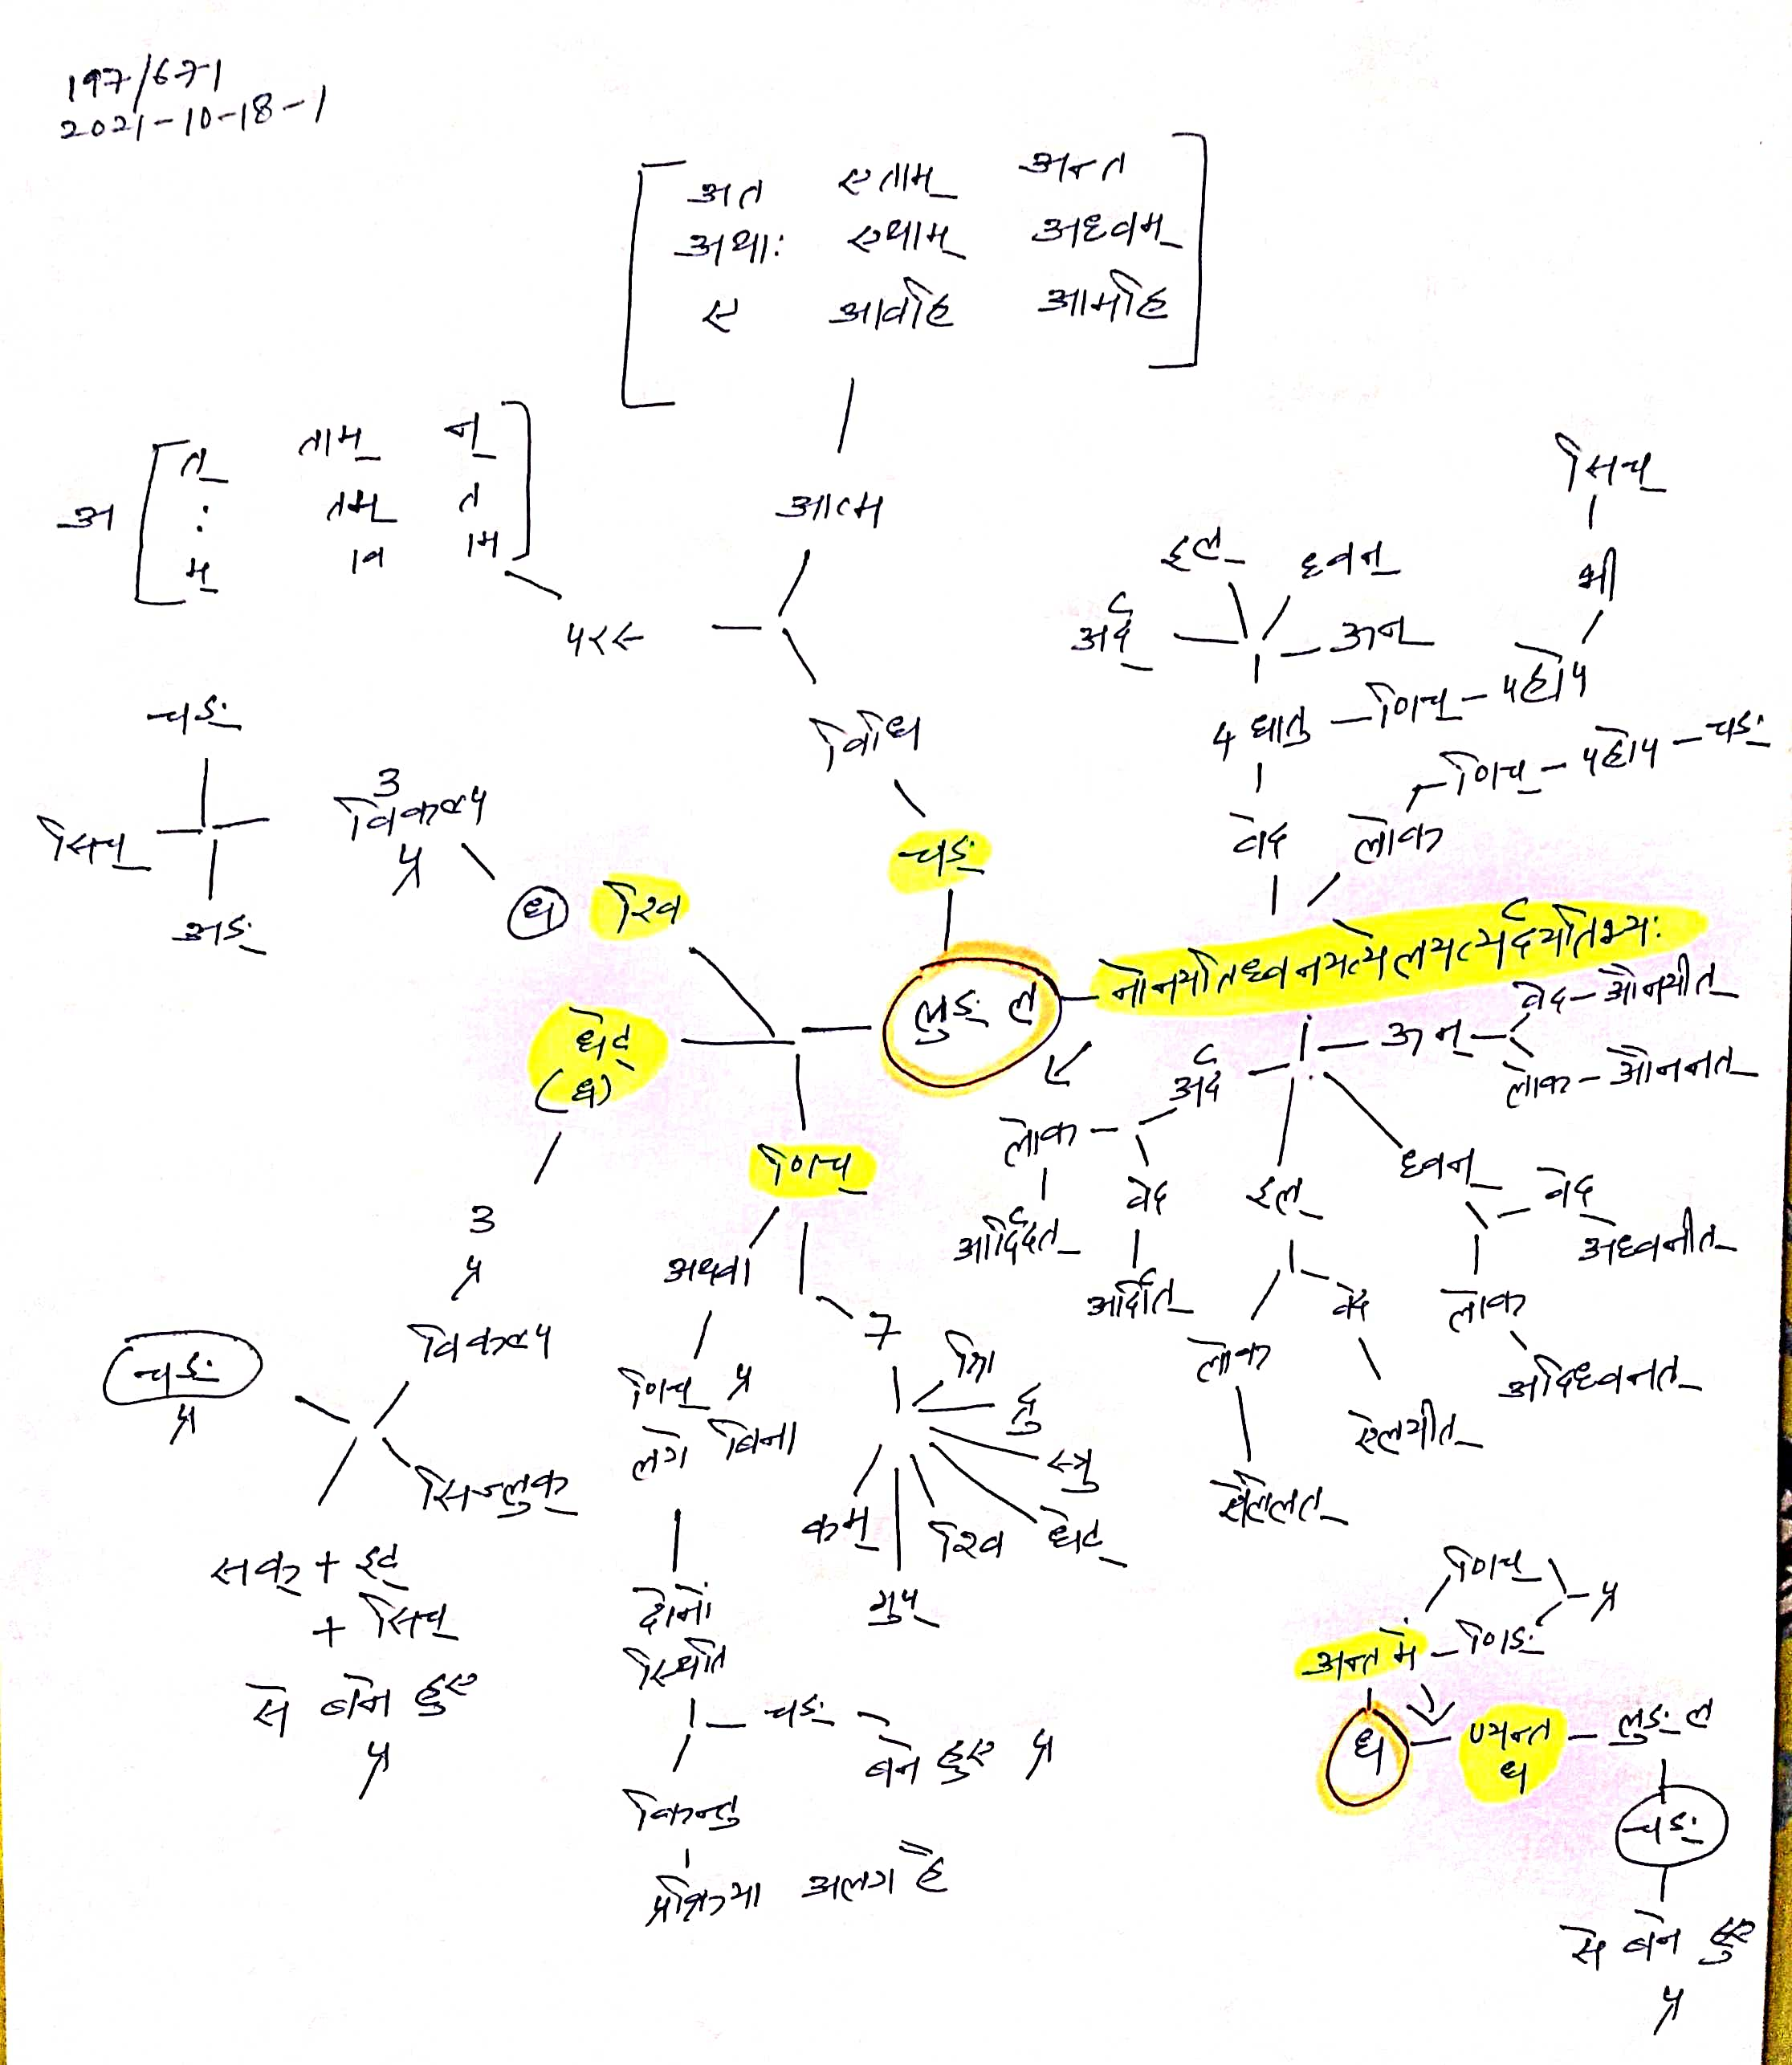 197/671
2021-10-18-1
अत एताम् अन्त
अथाः एथाम् अध्वम्
ए आवहि आमहि
त् ताम् न्
अ : तम् त
म् ाव ाम
आत्म
परस्
विधि
चङ्
चङ्
सिच्
अङ्
3
विकल्प
प्र
ध श्वि
धेट्
(ध)
णिच्
लुङ् ल
नोनयतिध्वनयत्येलयत्यर्दयतिभ्यः
सिच्
भी
इल्
ध्वन्
अर्द्
ऊन्
4 धातु – णिच् – पहोप
णिच् – पहोप – चङ्
वेद लोक
ऊन्
वेद – औनयीत्
लोक – औननत्
अर्द्
लोक
वेद
आर्दिदत्
आर्दीत्
इल्
लोक
वेद
ऐलिलत्
ऐलयीत्
ध्वन्
वेद
अध्वनीत्
लोक
अदिध्वनत्
3
प्र
विकल्प
चङ्
प्र
सिज्लुक्
सक् + इट्
+ सिच्
से बने हुए
प्र
अथवा
णिच् प्र
लगे बिना
दोनों
स्थिति
चङ्
बने हुए प्र
किन्तु
प्रक्रिया अलग है
7
श्रि
द्रु
स्रु
धेट्
श्वि
गुप्
कम्
णिच्
प्र
अन्त में – णिङ्
ध – ण्यन्त – लुङ् ल
ध
चङ्
से बने हुए
प्र